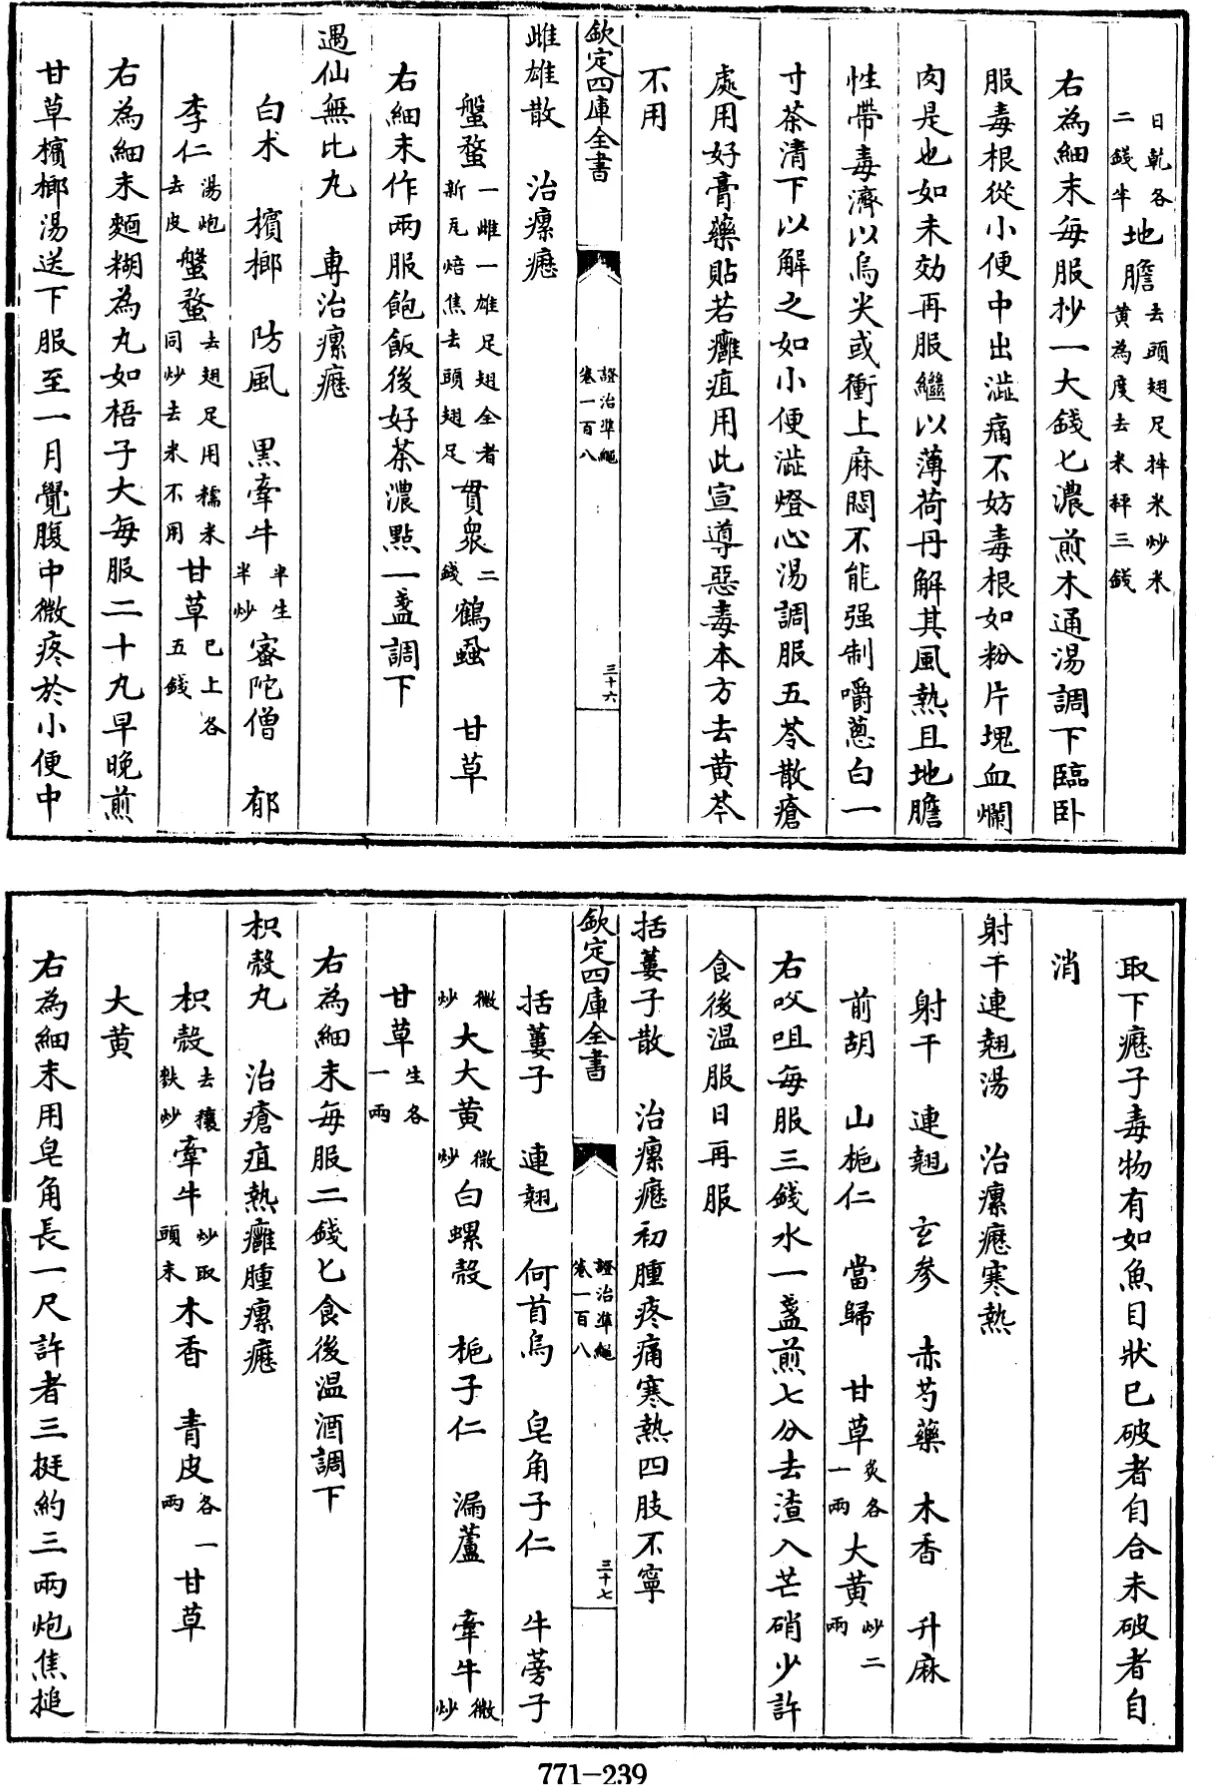 日乾各二錢半地膽去頭翅足拌米炒米黃為度去米秤三錢
右為細末每服抄一大錢匕濃煎木通湯調下臨卧
服毒根從小便中出澁痛不妨毒根如粉片塊血爛
肉是也如未効再服繼以薄荷丹解其風熱且地膽
性帶毒濟以烏尖或衝上麻悶不能强制嚼蔥白一
寸茶清下以解之如小便澁燈心湯調服五苓散瘡
處用好膏藥貼若癰疽用此宣導惡毒本方去黃芩
不用
欽定四庫全書
證治準繩
卷一百八
三十六
雌雄散 治瘰癧
盤蝥一雌一雄足翅全者新瓦焙焦去頭翅足貫衆二錢鶴蝨 甘草
右細末作兩服飽飯後好茶濃點一盞調下
遇仙無比丸 專治瘰癧
白术 檳榔 防風 黑牽牛半生半炒密陀僧 郁
李仁湯炮去皮盤蝥去翅足用糯米同炒去米不用甘草已上各五錢
右為細末麵糊為丸如梧子大每服二十丸早晚煎
甘草檳榔湯送下服至一月覺腹中微疼於小便中
取下癧子毒物有如魚目狀已破者自合未破者自
消
射干連翹湯 治瘰癧寒熱
射干 連翹 玄參 赤芍藥 木香 升麻
前胡 山梔仁 當歸 甘草炙各一兩大黃炒二兩
右㕮咀每服三錢水一盞煎七分去渣入芒硝少許
食後温服日再服
括蔞子散 治瘰癧初腫疼痛寒熱四肢不寧
欽定四庫全書
證治準繩
卷一百八
三十七
括蔞子 連翹 何首烏 皂角子仁 牛蒡子
微炒大大黃微炒白螺殼 梔子仁 漏蘆 牽牛微炒
甘草生各一兩
右為細末每服二錢匕食後温酒調下
枳殼丸 治瘡疽熱癰腫瘰癧
枳殼去穰麩炒牽牛炒取頭末木香 青皮各一兩甘草
大黃
右為細末用皂角長一尺許者三挺約三兩炮焦搥
771—239